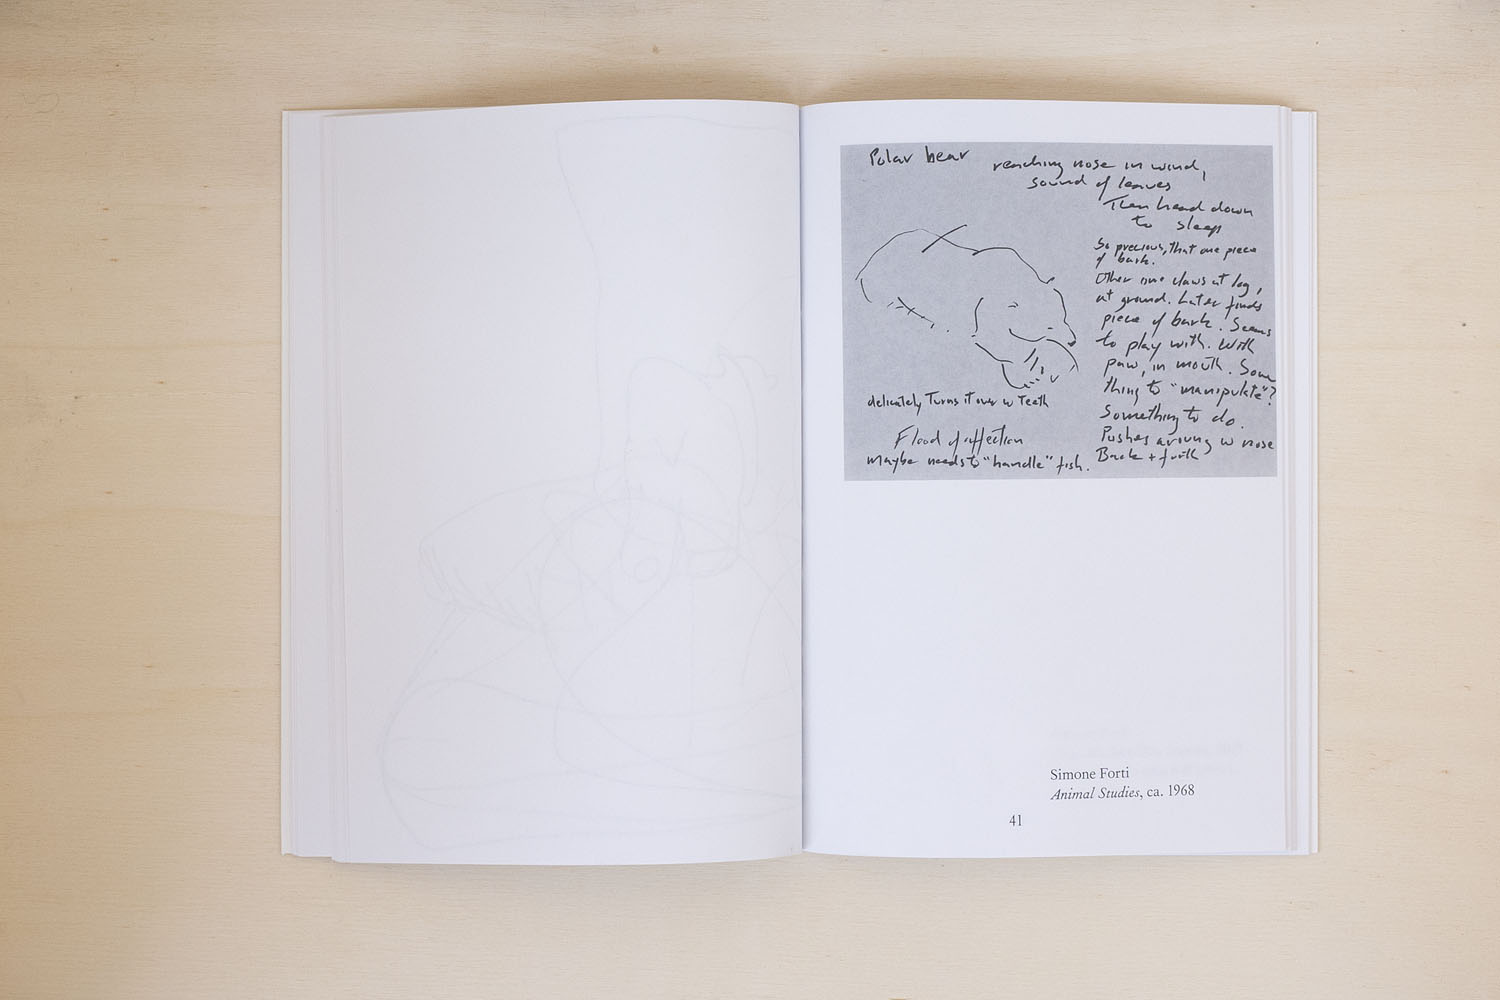 Polar bear
reaching nose in wind,
sound of leaves
Then head down
to sleep
So precious, that one piece
of bark.
Other one claws at log,
at ground. Later finds
piece of bark. Seems
to play with. With
paw, in mouth. Some
thing to "manipulate"?
Something to do.
Pushes around w nose
Back + forth
delicately Turns it over w Teeth
Flood of affection
maybe needs to "handle" fish.
Simone Forti
Animal Studies, ca. 1968
41